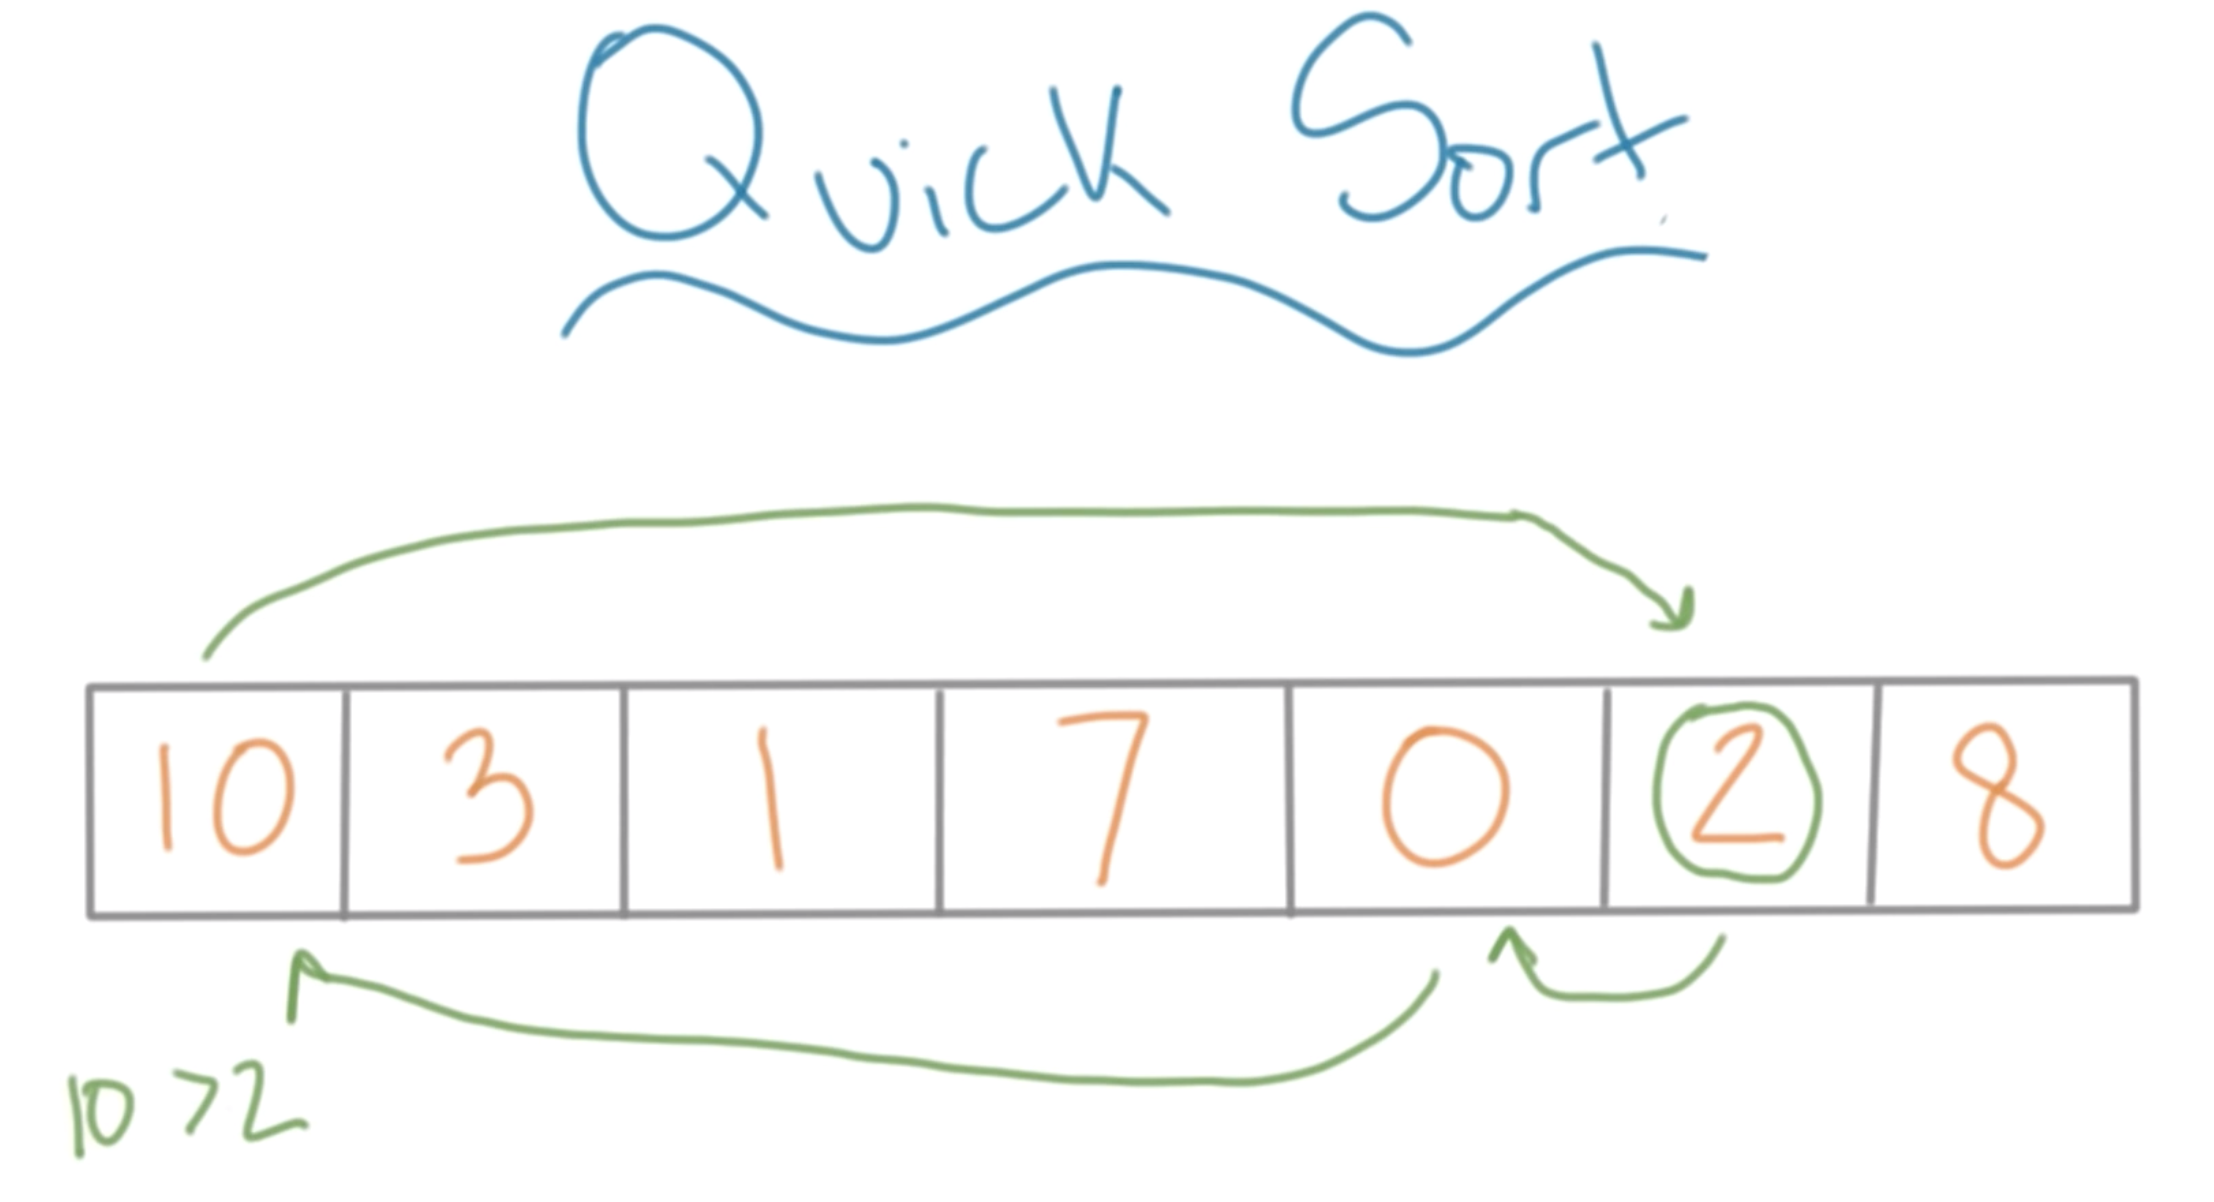 Quick Sort
10 3 1 7 0 2 8
10 > 2